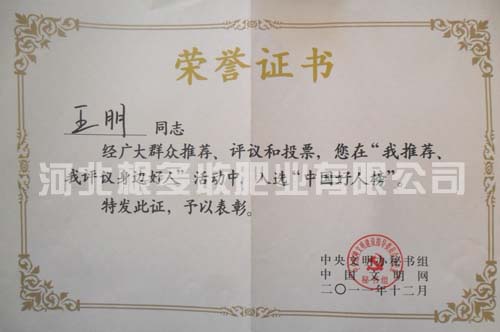 荣誉证书
王明 同志
经广大群众推荐、评议和投票，您在“我推荐、
我评议身边好人”活动中，入选“中国好人榜”。
特发此证，予以表彰。
河北 肥业有限公司
秘书组
中央文明办秘书组
中国文明网
二〇一一年十二月